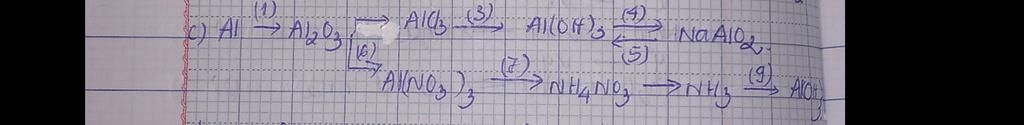 c) Al (1)→ Al2O3 → AlCl3 (3)→ Al(OH)3 (4)→ ←(5) NaAlO2.
(6)→ Al(NO3)3 (7)→ NH4NO3 → NH3 (9)→ Al(OH)3